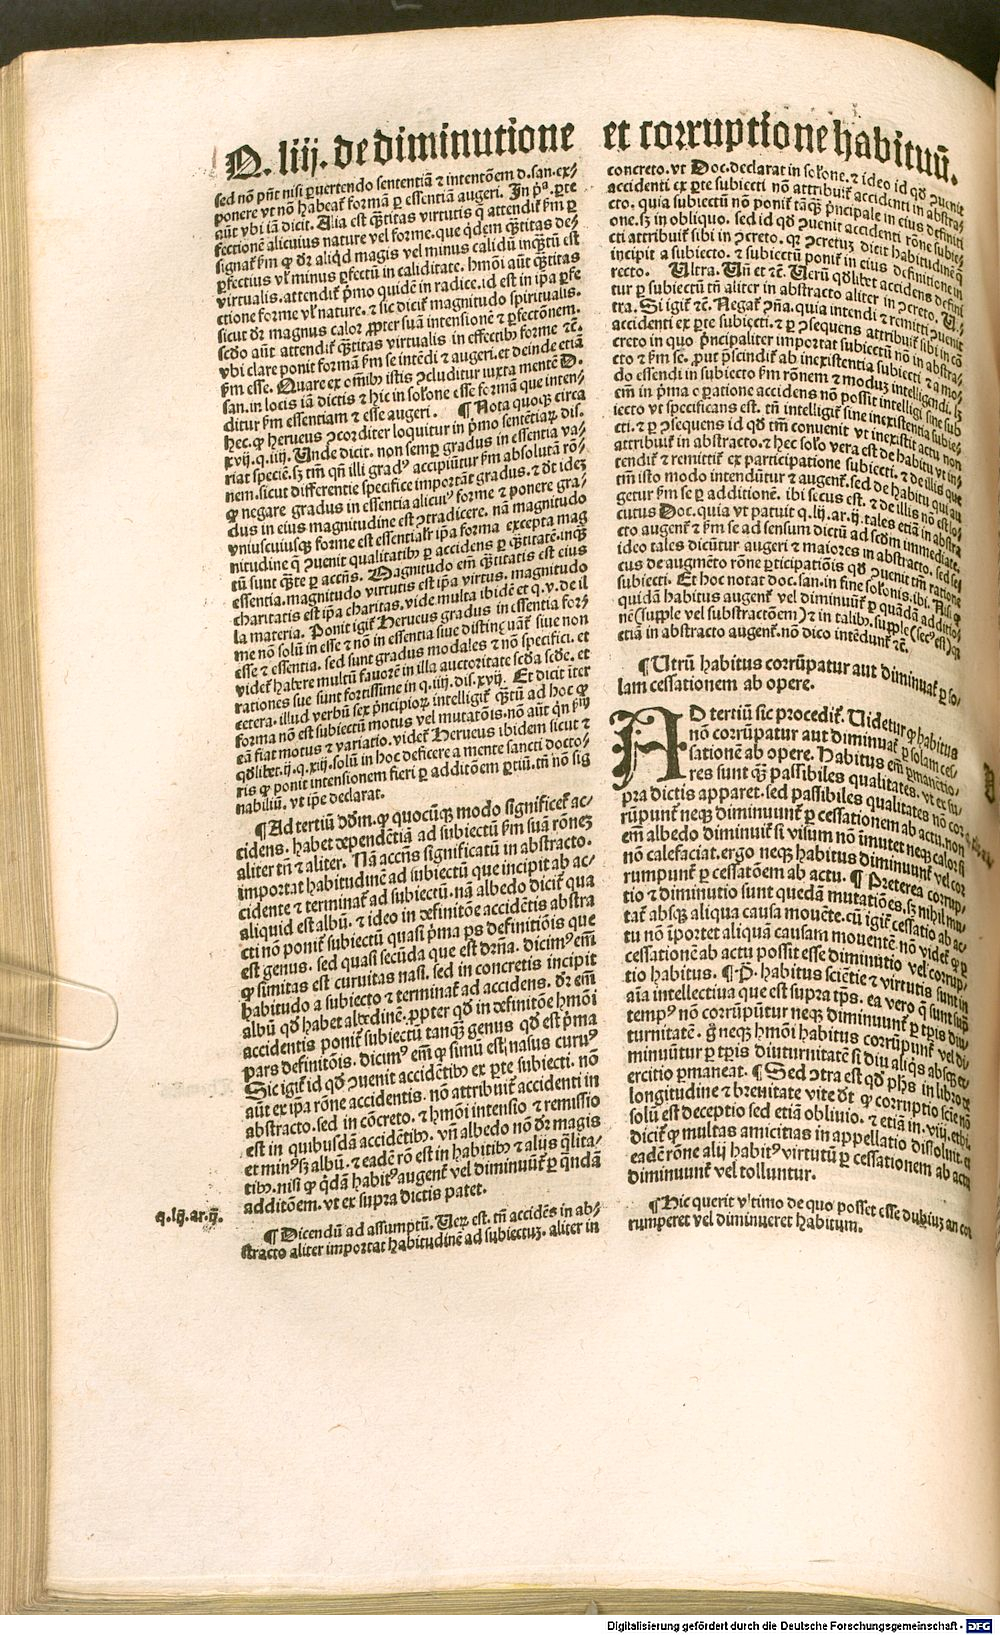 Q. liij. de diminutione et corruptione habituū.
sed nō pn̄t nisi ꝑuertendo sententiā ⁊ intentōem d. san. ex⸗
ponere vt nō habeat᷑ formā ꝑ essentiā augeri. In pͣ. ꝑte
aūt vbi iā dicit. Alia est q̄titas virtutis q̄ attendit᷑ ẜm ꝑ
fectionē alicuius nature vel forme. que q̇dem q̄titas de⸗
signat᷑ ẜm ꝙ dr̄ aliq̇d magis vel minus calidū inq̄tū est
ꝑfectius vl᷑ minus ꝑfectū in caliditate. hmōi aūt q̄titas
virtualis. attendit᷑ pͥmo quidē in radice. id est in ip̄a ꝑfe
ctione forme vl᷑ nature. ⁊ sic dicit᷑ magnitudo spiritualis.
sicut dr̄ magnus calor ꝓpter suā intensionē ⁊ ꝑfectōnem.
scd̄o aūt attendit᷑ q̄titas virtualis in effectibꝰ forme ⁊c̄.
vbi clare ponit formā ẜm se intēdi ⁊ augeri. et deinde etiā
ẜm esse. Quare ex oīb istis ꝯcluditur iuxta mentē D.
san. in locis iā dictis ⁊ hic in sol᷑one esse formā que inten⸗
ditur ẜm essentiam ⁊ esse augeri. ¶ Nota quoqꝫ circa
hec. ꝙ herueus ꝯcorditer loquitur in pͥmo sententiaꝝ dis.
xvij. q. iiij. Unde dicit. non semꝑ gradus in essentia va⸗
riat speciē. sꝫ tm̄ qn̄ illi gradꝰ accipiūtur ẜm absolutā rō⸗
nem. sicut differentie specifice importāt gradus. ⁊ dt̄ idez
ꝙ negare gradus in essentia alicuiꝰ forme ⁊ ponere gra⸗
dus in eius magnitudine est ꝯtradicere. nā magnitudo
vniuscuiusqꝫ forme est essentialr̄ ip̄a forma excepta mag
nitudine q̄ ꝯuenit qualitatibꝰ ꝑ accidens ꝑ q̄titatē. inq̄
tū sunt q̄te ꝑ accn̄s. Magnitudo em̄ q̄titatis est eius
essentia. magnitudo virtutis est ip̄a virtus. magnitudo
charitatis est ip̄a charitas. vide multa ibidē et q. v. de il
la materia. Ponit igit᷑ Herueus gradus in essentia for⸗
me nō solū in esse ⁊ nō in essentia siue distinguāt᷑ siue non
esse ⁊ essentia. sed sunt gradus modales ⁊ nō specifici. et
videt᷑ habere multū fauorē in illa auctoritate scd̄a scd̄e. et
rationes sue sunt fortissime in q. iiij. dis. xvij. Et dicit iter
cetera. illud verbū sex pͥncipioꝝ intelligit᷑ q̄tū ad hoc ꝙ
forma nō est subiectū motus vel mutatōis. nō aūt qn̄ ẜm
eā fiat motus ⁊ variatio. videt᷑ Herueus ibidem sicut ⁊
qd̄libet. ij. q. xiij. solū in hoc deficere a mente sancti docto⸗
ris ꝙ ponit intensionem fieri ꝑ additōem ꝑtiū. tn̄ nō sig
nabiliū. vt ip̄e declarat.
¶ Ad tertiū dd̄m. ꝙ quocūqꝫ modo significet᷑ ac⸗
cidens. habet dependētiā ad subiectū ẜm suā rōnez
aliter tn̄ ⁊ aliter. Nā accn̄s significatū in abstracto.
importat habitudinē ad subiectū que incipit ab ac⸗
cidente ⁊ terminat᷑ ad subiectū. nā albedo dicit᷑ qua
aliquid est albū. ⁊ ideo in definitōe accidētis abstra
cti nō ponit᷑ subiectū quasi pͥma ps definitiōis que
est genus. sed quasi secūda que est drn̄a. dicimꝰ em̄
ꝙ simitas est curuitas nasi. sed in concretis incipit
habitudo a subiecto ⁊ terminat᷑ ad accidens. dr̄ em̄
albū qd̄ habet albedinē. ꝓpter qd̄ in definitōe hmōi
accidentis ponit᷑ subiectū tanqꝫ genus qd̄ est pͥma
pars definitōis. dicimꝰ em̄ ꝙ simū est nasus curuꝰ
Sic igit᷑ id qd̄ ꝯuenit accidētibꝰ ex ꝑte subiecti. nō
aūt ex ip̄a rōne accidentis. nō attribuit᷑ accidenti in
abstracto. sed in cōcreto. ⁊ hmōi intensio ⁊ remissio
est in quibusdā accidētibꝰ. vn̄ albedo nō dr̄ magis
et minꝰ sꝫ albū. ⁊ eadē rō est in habitibꝰ ⁊ alijs q̄lita⸗
tibꝰ. nisi ꝙ q̇dā habitꝰ augent᷑ vel diminuūt᷑ ꝑ q̄ndā
additōem. vt ex supra dictis patet.
q. lij. ar. ij.
¶ Dicendū ad assumptū. Uerꝫ est. tn̄ accidēs in ab⸗
stracto aliter importat habitudinē ad subiectuꝫ. aliter in
concreto. vt Doc. declarat in sol᷑one. ⁊ ideo id qd̄ ꝯuenit
accidenti ex ꝑte subiecti nō attribuit᷑ accidenti in abstra⸗
cto. quia subiectū nō ponit᷑ tāqꝫ pͥncipale in eius definiti
one. sꝫ in obliquo. sed id qd̄ ꝯuenit accidenti rōne subie⸗
cti attribuit᷑ sibi in ꝯcreto. qꝛ ꝯcretuꝫ dicit habitudinē q̄
incipit a subiecto. ⁊ subiectū ponit᷑ in eius definitione in
recto. Ultra. Un̄ et ⁊c̄. Uerū qd̄libet accidens defini
tur ꝑ subiectū tn̄ aliter in abstracto aliter in ꝯcreto. Ul⸗
tra. Si igit᷑ ⁊c̄. Negat᷑ ꝯn̄a. quia intendi ⁊ remitti ꝯuenit
accidenti ex ꝑte subiecti. ⁊ ꝑ ꝯsequens attribuit᷑ sibi in cō
creto in quo pͥncipaliter importat subiectū nō in abstra⸗
cto ⁊ ẜm se. ꝓut pͥscindit᷑ ab inexistentia subiecti ⁊ a mo⸗
do essendi in subiecto ẜm rōnem ⁊ moduꝫ intelligendi. lꝫ
em̄ in pͥma oꝑatione accidens nō possit intelligi sine sub
iecto vt specificans est. tn̄ intelligit᷑ sine inexistentia subie⸗
cti. ⁊ ꝑ ꝯsequens id qd̄ tm̄ conuenit vt inexistit actu non
attribuit᷑ in abstracto. ⁊ hec solo vera est de habitu vt in⸗
tendit᷑ ⁊ remittit᷑ ex participatione subiecti. ⁊ de illis que
tm̄ isto modo intendūtur ⁊ augent᷑. sed de habitu qui au
getur ẜm se ꝑ additionē. ibi secus est. ⁊ de illis nō est lo⸗
cutus Doc. quia vt patuit q. lij. ar. ij. tales etiā in abstra
cto augent᷑ ⁊ ẜm se ad sensum dictū ad scd̄m immediate.
ideo tales dicūtur augeri ⁊ maiores in abstracto. sed sec⸗
cus de augmēto rōne ꝑticipatiōis qd̄ ꝯuenit tm̄ ratione
subiecti. Et hoc notat doc. san. in fine sol᷑onis. ibi. Nisi ꝙ
quidā habitus augent᷑ vel diminuūt᷑ ꝑ quādā additio⸗
nē (supple vel substractōem) ⁊ in talibꝰ. supple (secꝰ est) qꝛ
etiā in abstracto augent᷑. nō dico intēdunt᷑ ⁊c̄.
¶ Utrū habitus corrūpatur aut diminuat᷑ ꝑ so⸗
lam cessationem ab opere.
AD tertiū sic procedit᷑. Uidetur ꝙ habitus
nō corrūpatur aut diminuat᷑ ꝑ solam ces⸗
sationē ab opere. Habitus em̄ ꝑmanētio⸗
res sunt qꝫ passibiles qualitates. vt ex su⸗
pra dictis apparet. sed passibiles qualitates nō cor
rūpunt᷑ neqꝫ diminuunt᷑ ꝑ cessationem ab actu. non
em̄ albedo diminuit᷑ si visum nō īmutet neqꝫ calor si
nō calefaciat. ergo neqꝫ habitus diminuunt᷑ vel cor
rumpunt᷑ ꝑ cessatōem ab actu. ¶ Preterea corrup⸗
tio ⁊ diminutio sunt quedā mutatiōes. sꝫ nihil mu⸗
tat᷑ absqꝫ aliqua causa mouēte. cū igit᷑ cessatio ab ac⸗
tu nō īportet aliquā causam mouentē nō videt᷑ ꝙ ꝑ
cessationē ab actu possit esse diminutio vel corrup⸗
tio habitus. ¶ P̄. habitus sciētie ⁊ virtutis sunt in
aīa intellectiua que est supra tp̄s. ea vero q̄ sunt supͣ
tempꝰ nō corrūpūtur neqꝫ diminuunt᷑ ꝑ tp̄is diu⸗
turnitatē. gͦ neqꝫ hmōi habitus corrūpunt᷑ vel di⸗
minuūtur ꝑ tp̄is diuturnitatē si diu aliqͥs absqꝫ ex⸗
ercitio ꝑmaneat. ¶ Sed ꝯtra est qd̄ ph̄s in libro de
longitudine ⁊ breuitate vite dt̄ ꝙ corruptio scie nō
solū est deceptio sed etiā obliuio. ⁊ etiā in. viij. ethi.
dicit᷑ ꝙ multas amicitias inappellatio dissoluit. et
eadē rōne alij habitꝰ virtutū ꝑ cessationem ab actu
diminuunt᷑ vel tolluntur.
¶ Hic querit vltimo de quo posset esse dubiuꝫ an cor
rumperet vel diminueret habitum.
Digitalisierung gefördert durch die Deutsche Forschungsgemeinschaft - DFG